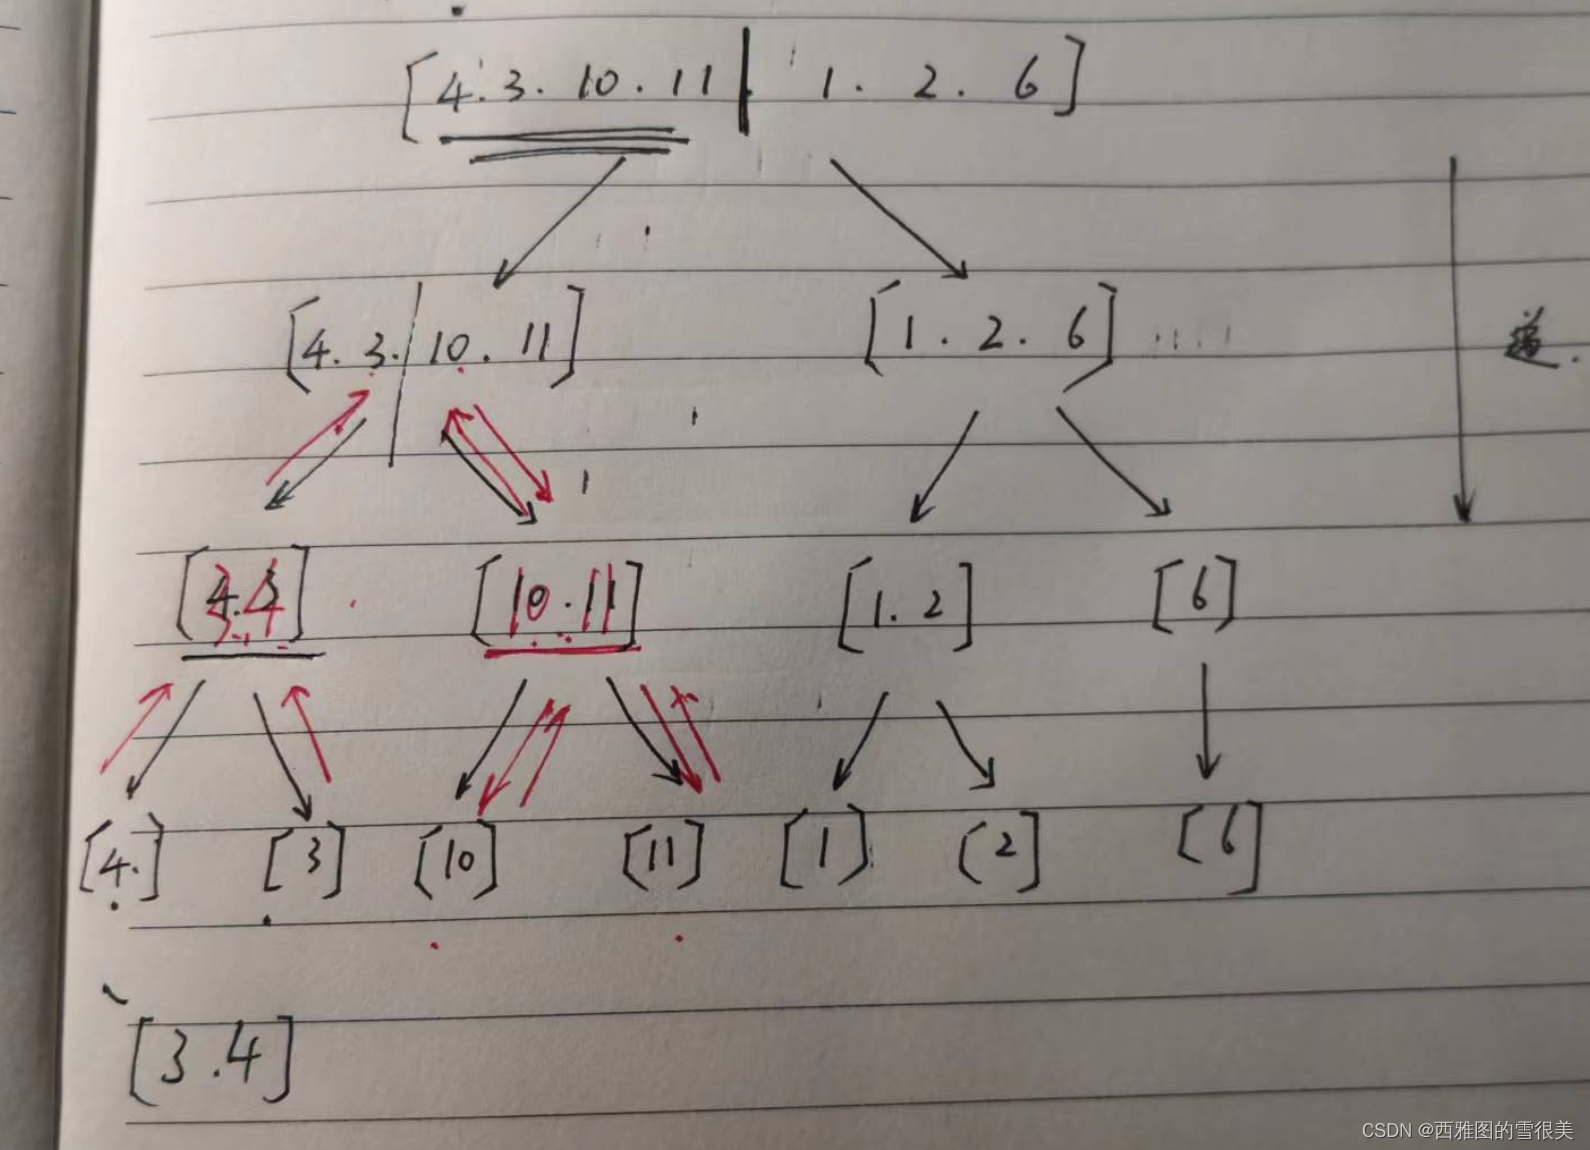 [4.3.10.11 | 1. 2. 6]
[4.3. | 10. 11] [1. 2. 6]
递.
[10.11] [1.2] [6]
[4.] [3] [10] [11] [1] [2] [6]
[3.4]
CSDN @西雅图的雪很美